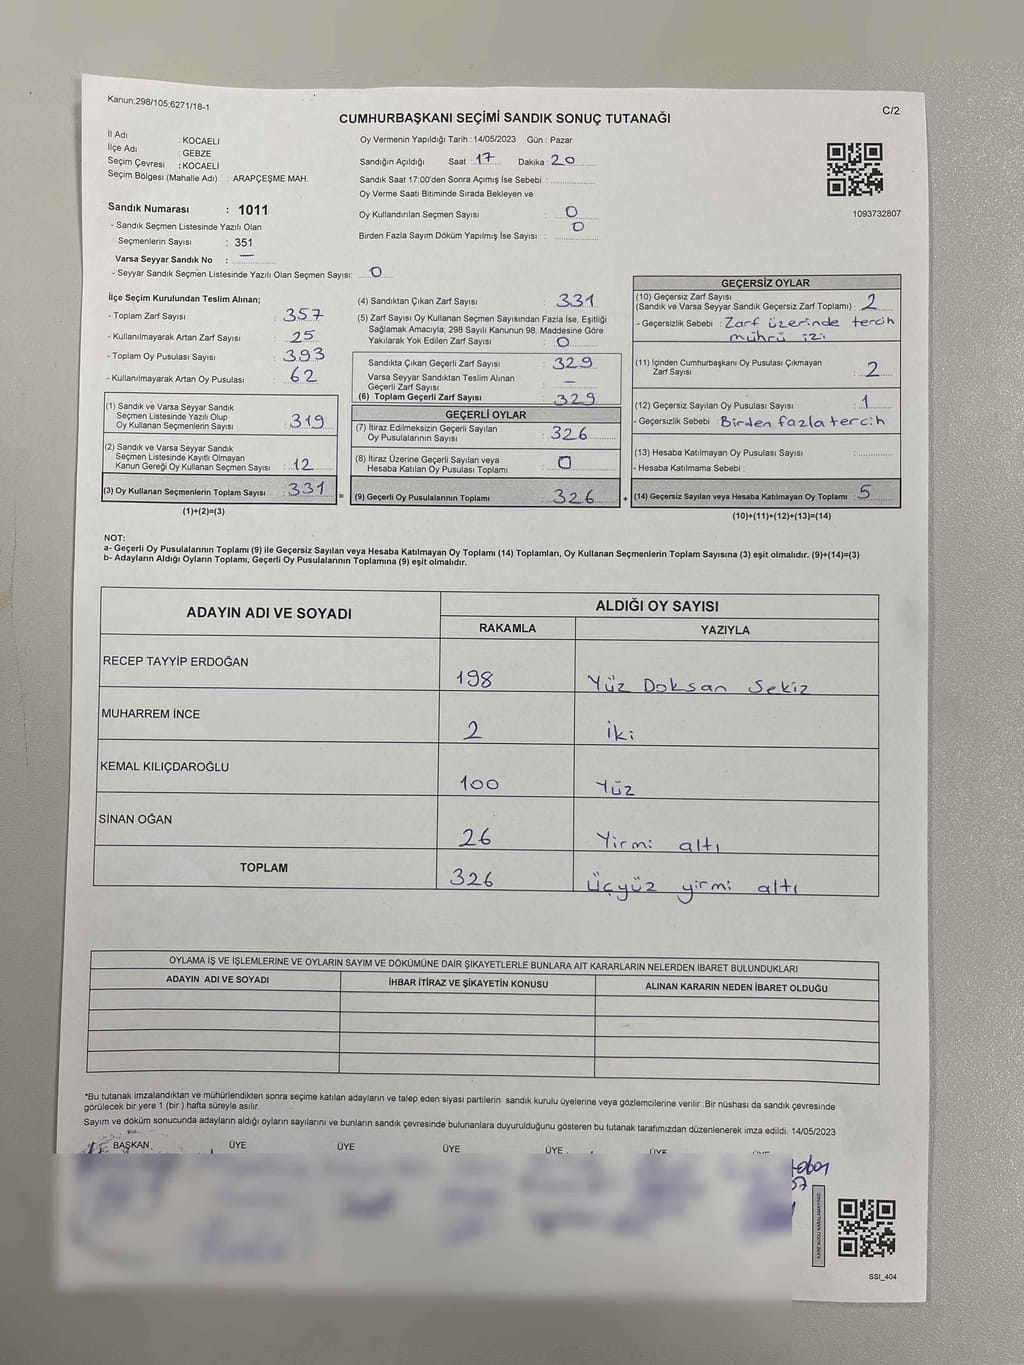 Kanun;298/105;6271/18-1
C/2
CUMHURBAŞKANI SEÇİMİ SANDIK SONUÇ TUTANAĞI
İl Adı : KOCAELİ
İlçe Adı : GEBZE
Seçim Çevresi : KOCAELİ
Seçim Bölgesi (Mahalle Adı) : ARAPÇEŞME MAH.
Sandık Numarası : 1011
- Sandık Seçmen Listesinde Yazılı Olan
Seçmenlerin Sayısı : 351
Varsa Seyyar Sandık No : —
- Seyyar Sandık Seçmen Listesinde Yazılı Olan Seçmen Sayısı: 0
Oy Vermenin Yapıldığı Tarih : 14/05/2023 Gün : Pazar
Sandığın Açıldığı Saat : 17 Dakika : 20
Sandık Saat 17:00'den Sonra Açımış İse Sebebi :
Oy Verme Saati Bitiminde Sırada Bekleyen ve
Oy Kullandırılan Seçmen Sayısı : 0
Birden Fazla Sayım Döküm Yapılmış İse Sayısı : 0
1093732807
İlçe Seçim Kurulundan Teslim Alınan;
- Toplam Zarf Sayısı : 357
- Kullanılmayarak Artan Zarf Sayısı : 25
- Toplam Oy Pusulası Sayısı : 393
- Kullanılmayarak Artan Oy Pusulası : 62
(1) Sandık ve Varsa Seyyar Sandık
Seçmen Listesinde Yazılı Olup
Oy Kullanan Seçmenlerin Sayısı : 319
(2) Sandık ve Varsa Seyyar Sandık
Seçmen Listesinde Kayıtlı Olmayan
Kanun Gereği Oy Kullanan Seçmen Sayısı : 12
(3) Oy Kullanan Seçmenlerin Toplam Sayısı : 331 =
(1)+(2)=(3)
(4) Sandıktan Çıkan Zarf Sayısı : 331
(5) Zarf Sayısı Oy Kullanan Seçmen Sayısından Fazla İse, Eşitliği
Sağlamak Amacıyla; 298 Sayılı Kanunun 98. Maddesine Göre
Yakılarak Yok Edilen Zarf Sayısı : 0
Sandıkta Çıkan Geçerli Zarf Sayısı : 329
Varsa Seyyar Sandıktan Teslim Alınan
Geçerli Zarf Sayısı : —
(6) Toplam Geçerli Zarf Sayısı : 329
GEÇERLİ OYLAR
(7) İtiraz Edilmeksizin Geçerli Sayılan
Oy Pusulalarının Sayısı : 326
(8) İtiraz Üzerine Geçerli Sayılan veya
Hesaba Katılan Oy Pusulası Toplamı : 0
(9) Geçerli Oy Pusulalarının Toplamı : 326 +
GEÇERSİZ OYLAR
(10) Geçersiz Zarf Sayısı
(Sandık ve Varsa Seyyar Sandık Geçersiz Zarf Toplamı) : 2
- Geçersizlik Sebebi : Zarf üzerinde tercih
mührü izi
(11) İçinden Cumhurbaşkanı Oy Pusulası Çıkmayan
Zarf Sayısı : 2
(12) Geçersiz Sayılan Oy Pusulası Sayısı : 1
- Geçersizlik Sebebi : Birden fazla tercih
(13) Hesaba Katılmayan Oy Pusulası Sayısı :
- Hesaba Katılmama Sebebi :
(14) Geçersiz Sayılan veya Hesaba Katılmayan Oy Toplamı : 5
(10)+(11)+(12)+(13)=(14)
NOT:
a- Geçerli Oy Pusulalarının Toplamı (9) ile Geçersiz Sayılan veya Hesaba Katılmayan Oy Toplamı (14) Toplamları, Oy Kullanan Seçmenlerin Toplam Sayısına (3) eşit olmalıdır. (9)+(14)=(3)
b- Adayların Aldığı Oyların Toplamı, Geçerli Oy Pusulalarının Toplamına (9) eşit olmalıdır.
ADAYIN ADI VE SOYADI ALDIĞI OY SAYISI
RAKAMLA YAZIYLA
RECEP TAYYİP ERDOĞAN 198 Yüz Doksan Sekiz
MUHARREM İNCE 2 İki
KEMAL KILIÇDAROĞLU 100 Yüz
SİNAN OĞAN 26 Yirmi altı
TOPLAM 326 Üçyüz yirmi altı
OYLAMA İŞ VE İŞLEMLERİNE VE OYLARIN SAYIM VE DÖKÜMÜNE DAİR ŞİKAYETLERLE BUNLARA AİT KARARLARIN NELERDEN İBARET BULUNDUKLARI
ADAYIN ADI VE SOYADI İHBAR İTİRAZ VE ŞİKAYETİN KONUSU ALINAN KARARIN NEDEN İBARET OLDUĞU
*Bu tutanak imzalandıktan ve mühürlendikten sonra seçime katılan adayların ve talep eden siyasi partilerin sandık kurulu üyelerine veya gözlemcilerine verilir .Bir nüshası da sandık çevresinde
görülecek bir yere 1 (bir ) hafta süreyle asılır.
Sayım ve döküm sonucunda adayların aldığı oyların sayılarını ve bunların sandık çevresinde bulunanlara duyurulduğunu gösteren bu tutanak tarafımızdan düzenlenerek imza edildi. 14/05/2023
BAŞKAN ÜYE ÜYE ÜYE ÜYE ÜYE
KARE KODU KARALAMAYINIZ!
SSI_404